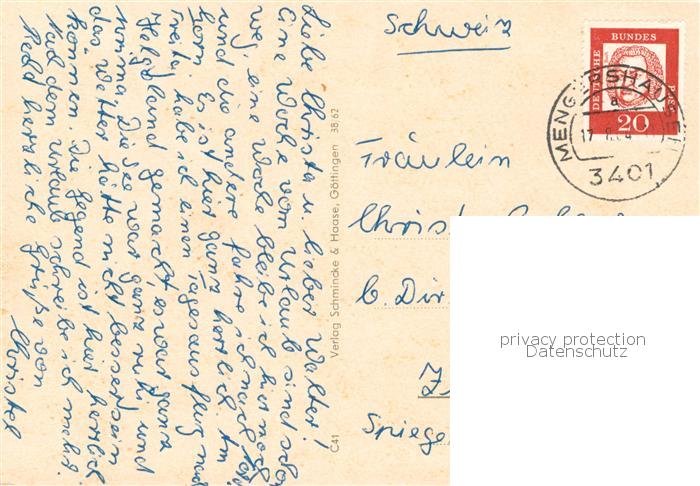 Liebe Christa u. lieber Walter!
Eine Woche vom Urlaub sind schon
weg, eine Woche bleibe ich hier noch
und die andere fahre ich nach
Es ist hier ganz herrlich. Am
Freitag habe ich einen Tagesausflug nach
Helgoland gemacht, es war ganz
prima. Die See war ganz ruhig und
das Wetter hätte nicht besser sein
können. Die Gegend ist hier herrlich
Nach dem Urlaub schreibe ich mehr.
Recht herzliche Grüße von
Christel
C41 Verlag Schmincke & Haase, Göttingen 38.62
Schweiz
DEUTSCHE BUNDESPOST
20
MENGERSHAUSEN
17
3401
Fräulein
Christ
b. Dir
Spiege
privacy protection
Datenschutz